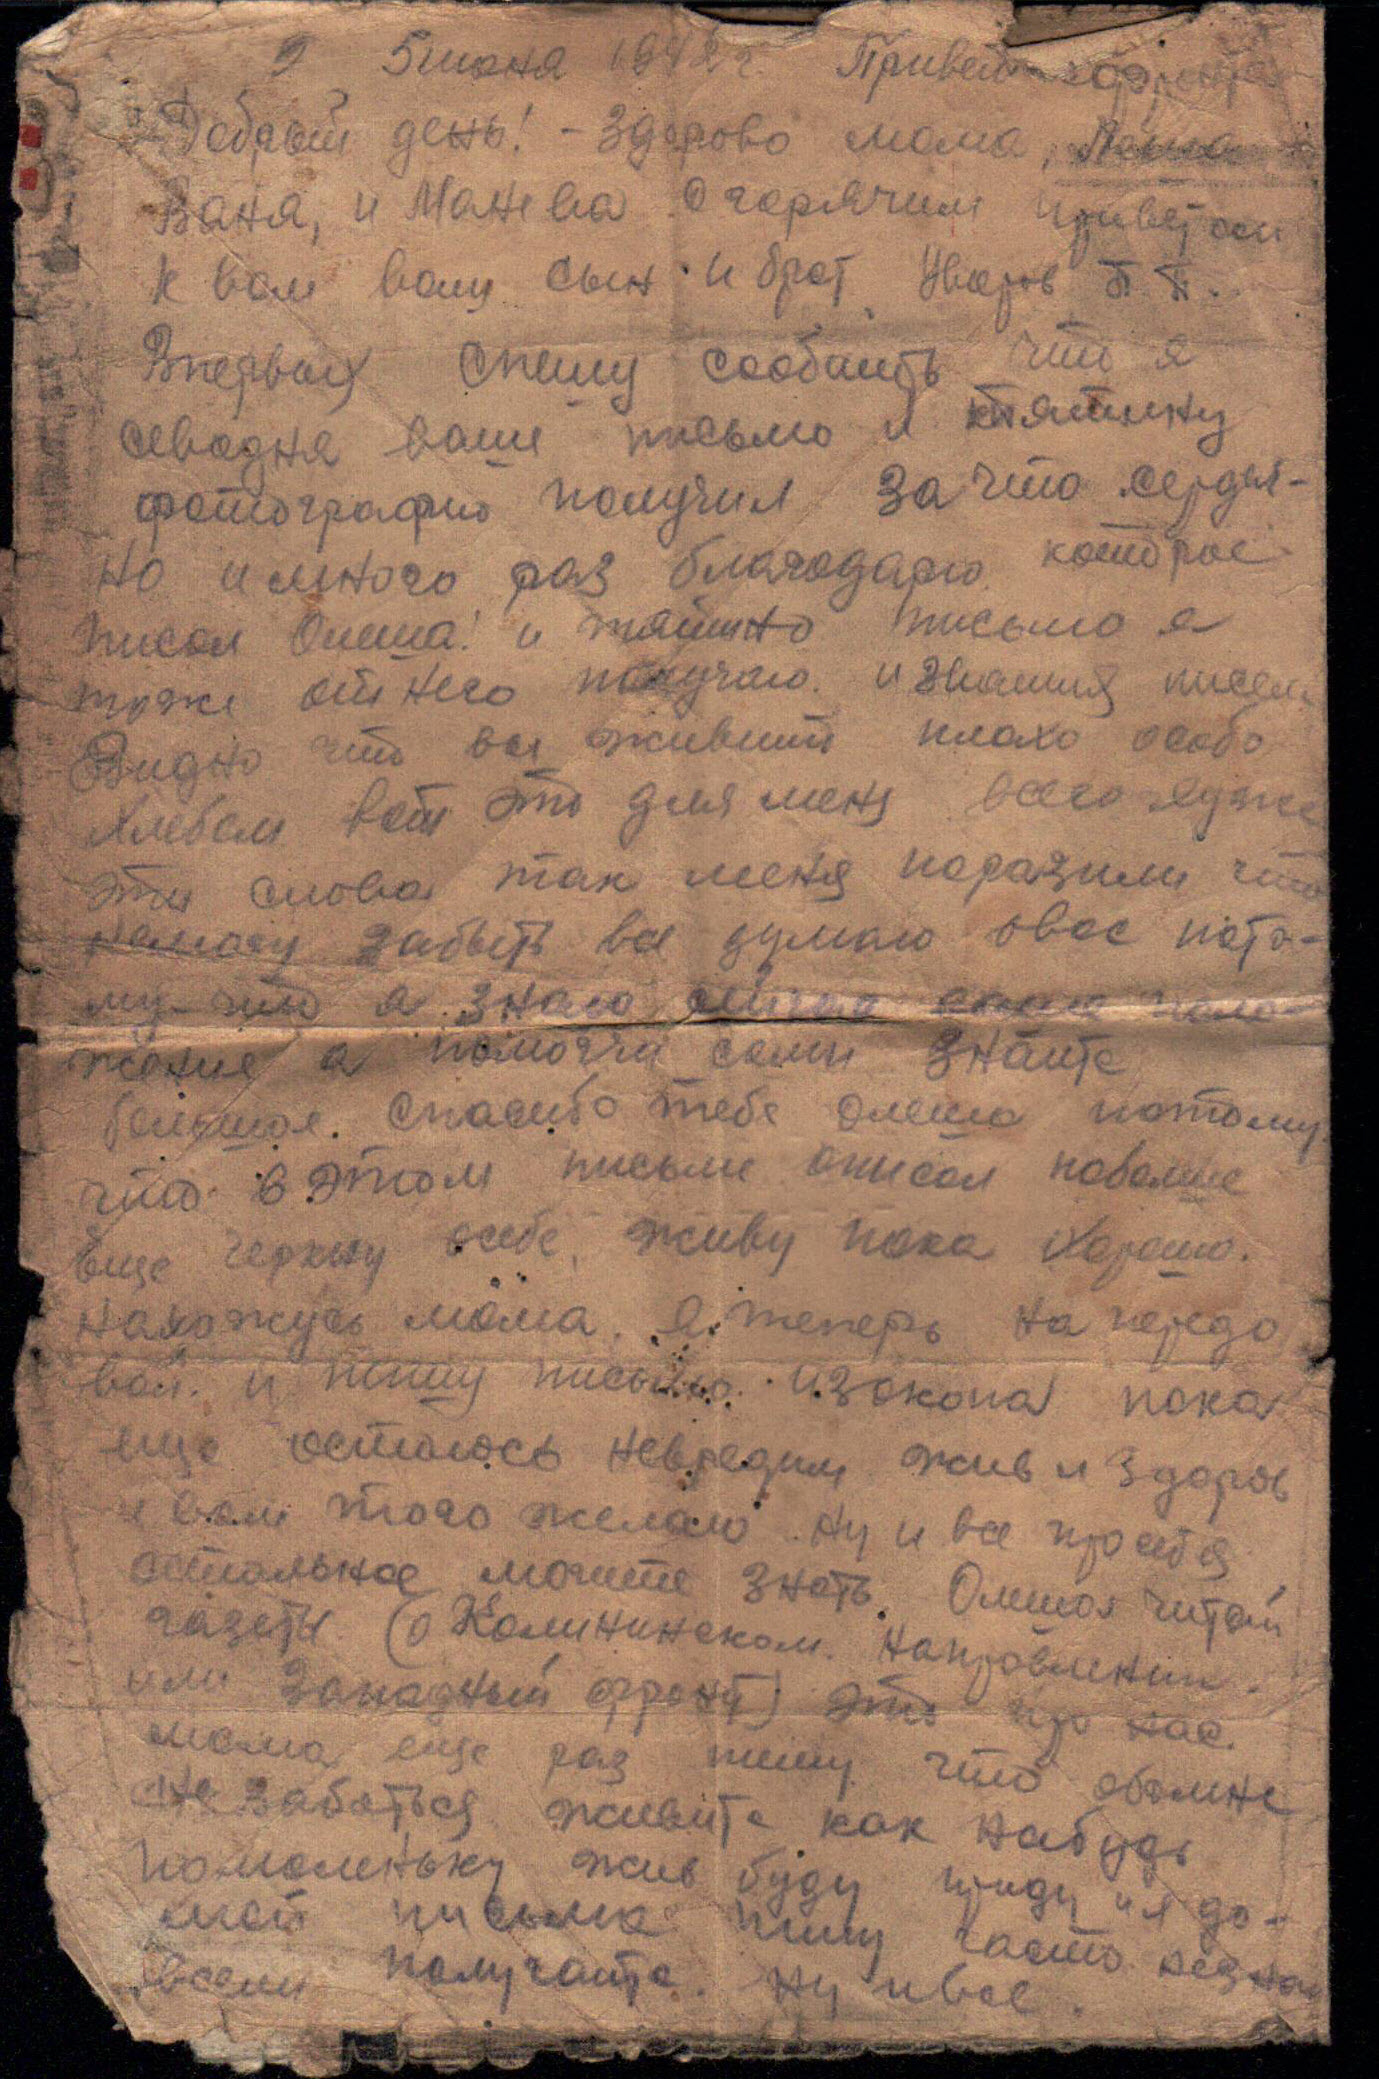 5 июня 1942 г. Привет с фронта
Добрый день! - Здорово мама,
Ваня, и Манева С горячим приветом
к вам ваш сын и брат Уваров П. П.
Впервых спешу сообщить что я
севодня ваше письмо и тятину
фотографию получил за что сердеч-
но и много раз благодарю которое
писал Олеша! и тятино письмо я
тоже от него получаю. и з вашия писем
Видно что вы живетё плахо особо
хлебом вот это для меня всего хуже
эти слова так меня поразили что
немогу забыть все думаю овас пото-
му-что я знаю ваше поло-
жение а помочи сами знаите
большое. спасибо тебе олеша потому
что в этом письме описал поболше
Еще черкну осебе. живу пока Хорошо.
нахожусь мама. я теперь на передо
вой. и пишу письмо изокопа пока
еще остаюсь невредим жив и здоров
и вам того желаю. ну и все просебя
остальное можите знать. Олеша читай
газеты (о Калининском. направлении.
или Западный фронт) это про нас.
мама еще раз пишу что обомне
не заботься живите как набудь
помаленьку жив буду приду ия до-
мой письма пишу часто незнаю
всели получаите. ну ивсе.